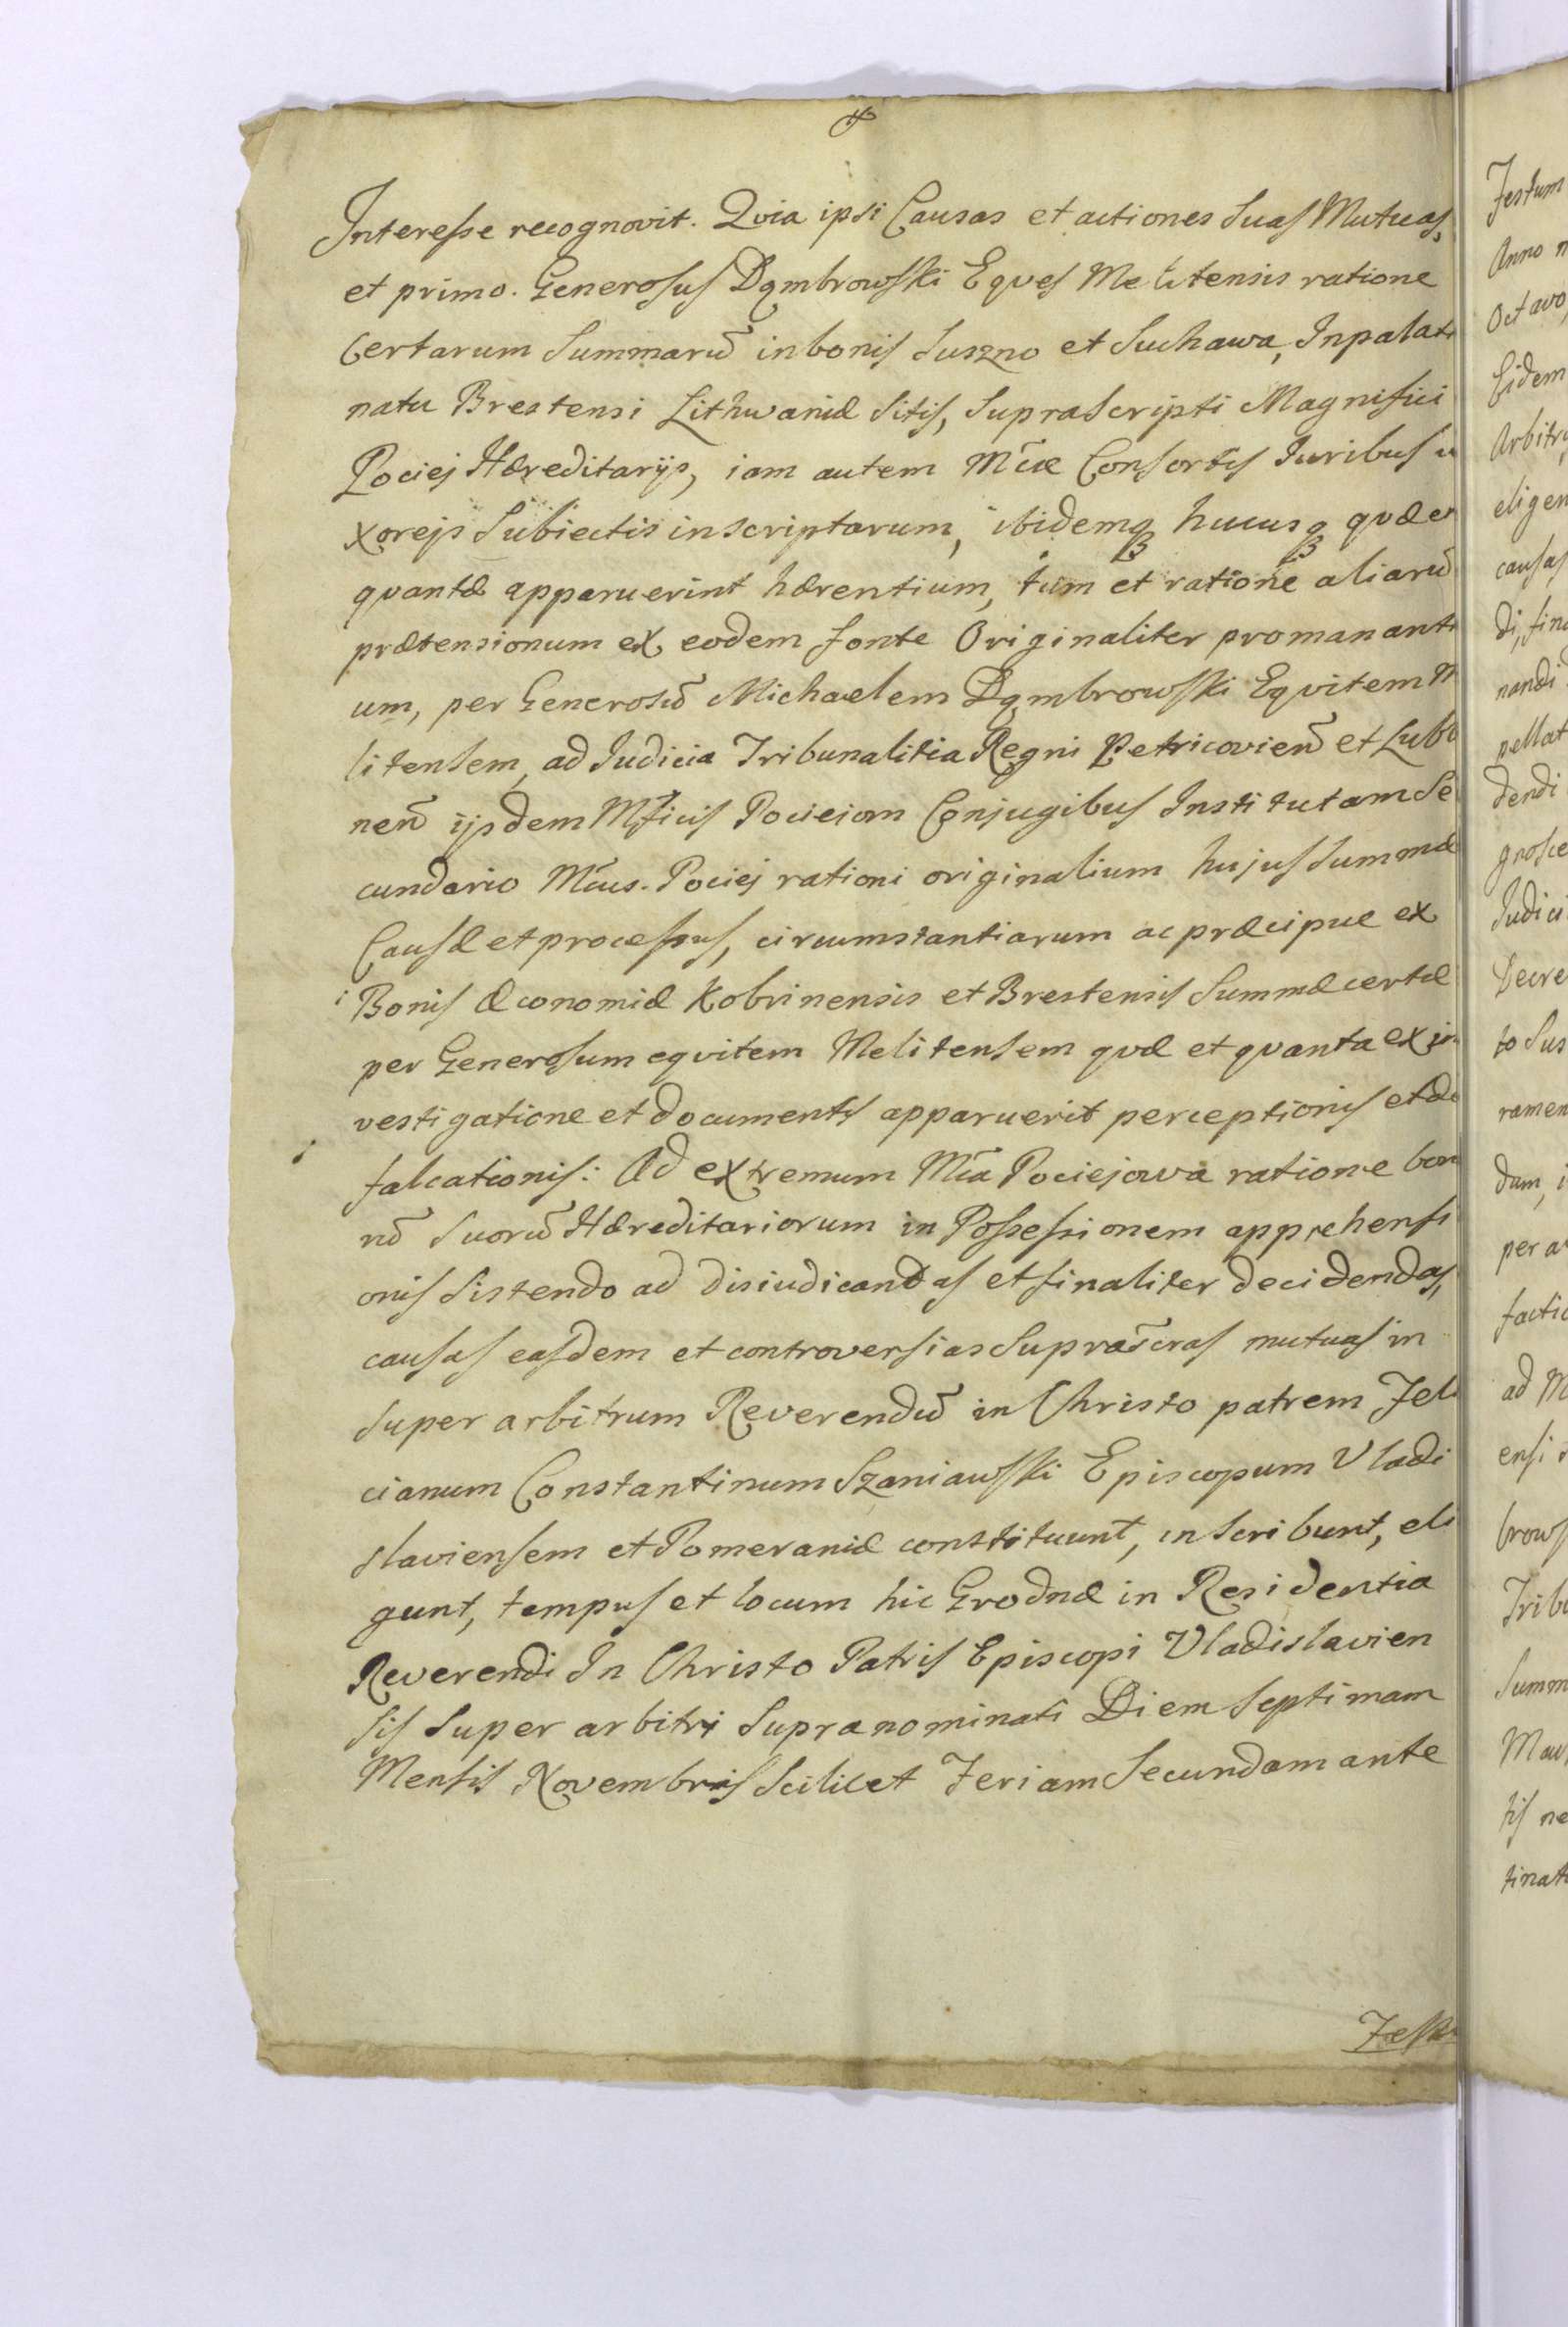 Interesse recognovit. Qvia ipsi Causas et actiones Suas Mutuas,
et primo. Generosus Dąmbrowski Eques Melitensis ratione
Certarum Summarū in bonis Suszno et Suchawa, In palati
natu Brestensi Lithvaniæ Sitis, Suprascripti Magnifici
Pociej Hæreditarijs, iam autem Mcæ Consortis Iuribus u
xorejs Subiectis inscriptarum, ibidemq hucusq qvæ et
qvantæ apparuerint hærentium, tum et ratione aliarū
prætensionum ex eodem fonte Originaliter promananti
um, per Generosū Michaelem Dąmbrowski Eqvitem M
litensem, ad Iudicia Tribunalitia Regni Petricovien̄ et Lubl
nen̄ ijsdem Mficis Pocieiom Conjugibus Institutam Se
cundario Mcus. Pociej rationi originalium hujus Summæ
Causæ et processus, circumstantiarum ac præcipue ex
Bonis Œconomiæ Kobrinensis et Brestensis Summæ certæ
per Generosum eqvitem Melitensem qvæ et qvanta ex in
vestigatione et documentis apparuerit perceptionis et de
falcationis: Ad extremum Mca Pociejowa ratione bon
nō Suorū Hæreditariorum in Possessionem apprehensi
onis Sistendo ad disiudicandas et finaliter decidendas,
causas easdem et controversias Supra͞scras mutuas in
Super arbitrum Reverendū in Christo patrem Feli
cianum Constantinum Szaniawski Episcopum Vladi
slaviensem et Pomeraniæ constituunt, inscribunt, eli
gunt, tempus et locum hic Grodnæ in Residentia
Reverendi In Christo Patris Episcopi Vladislavien
sis Super arbitri Supranominati Diem Septimam
Mensis Novembris Scilicet Feriam Secundam ante
Festum
Festum
Anno
Octavo
Eidem
Arbitr
eligen
causas
di, fin
nandi
pellat
dendi
gnosce
Iudici
Decre
to Sus
ramen
dam, i
per a
factio
ad M
ensi
brows
Trib
Summ
Mau
tis ne
tinat